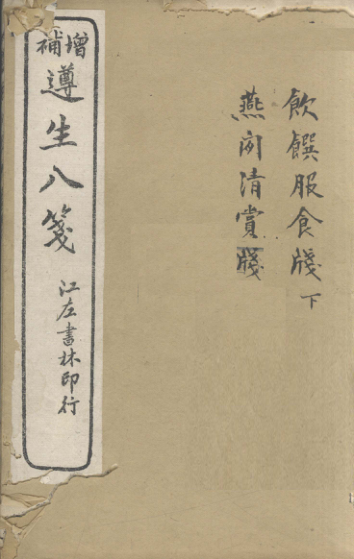 飲饌服食牋下
燕闲清賞牋
增補
遵生八箋
江左書林印行